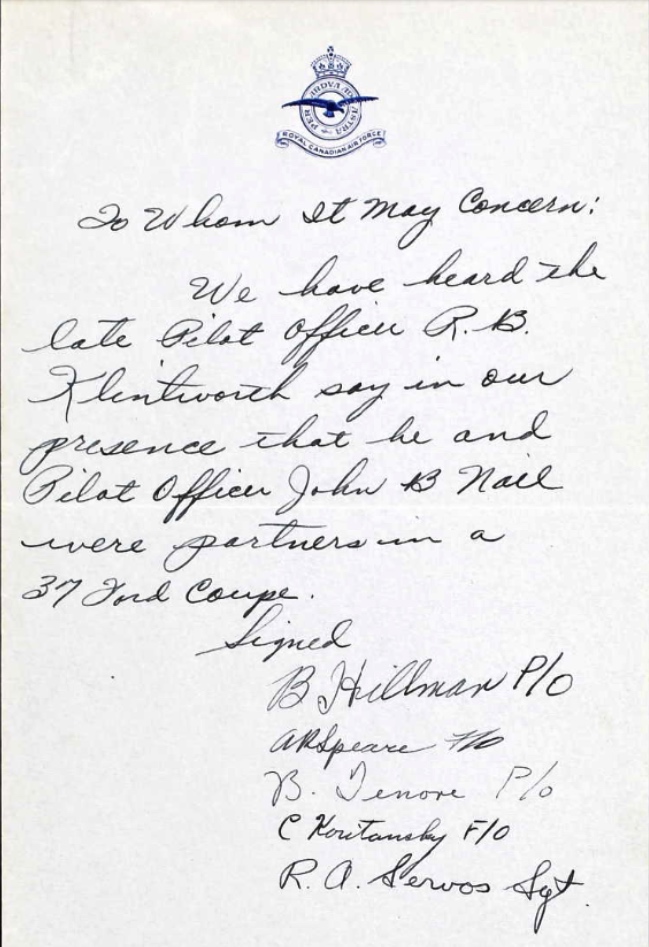 PER ARDVA AD ASTRA
ROYAL CANADIAN AIR FORCE
To Whom It May Concern:
We have heard the
late Pilot Officer R. B.
Klintworth say in our
presence that he and
Pilot Officer John B Nail
were partners in a
37 Ford Coupe.
Signed
B Hillman P/O
AR Speare F/O
B. Tenore P/o
C Koutansky F/O
R. A. Servos Sgt.